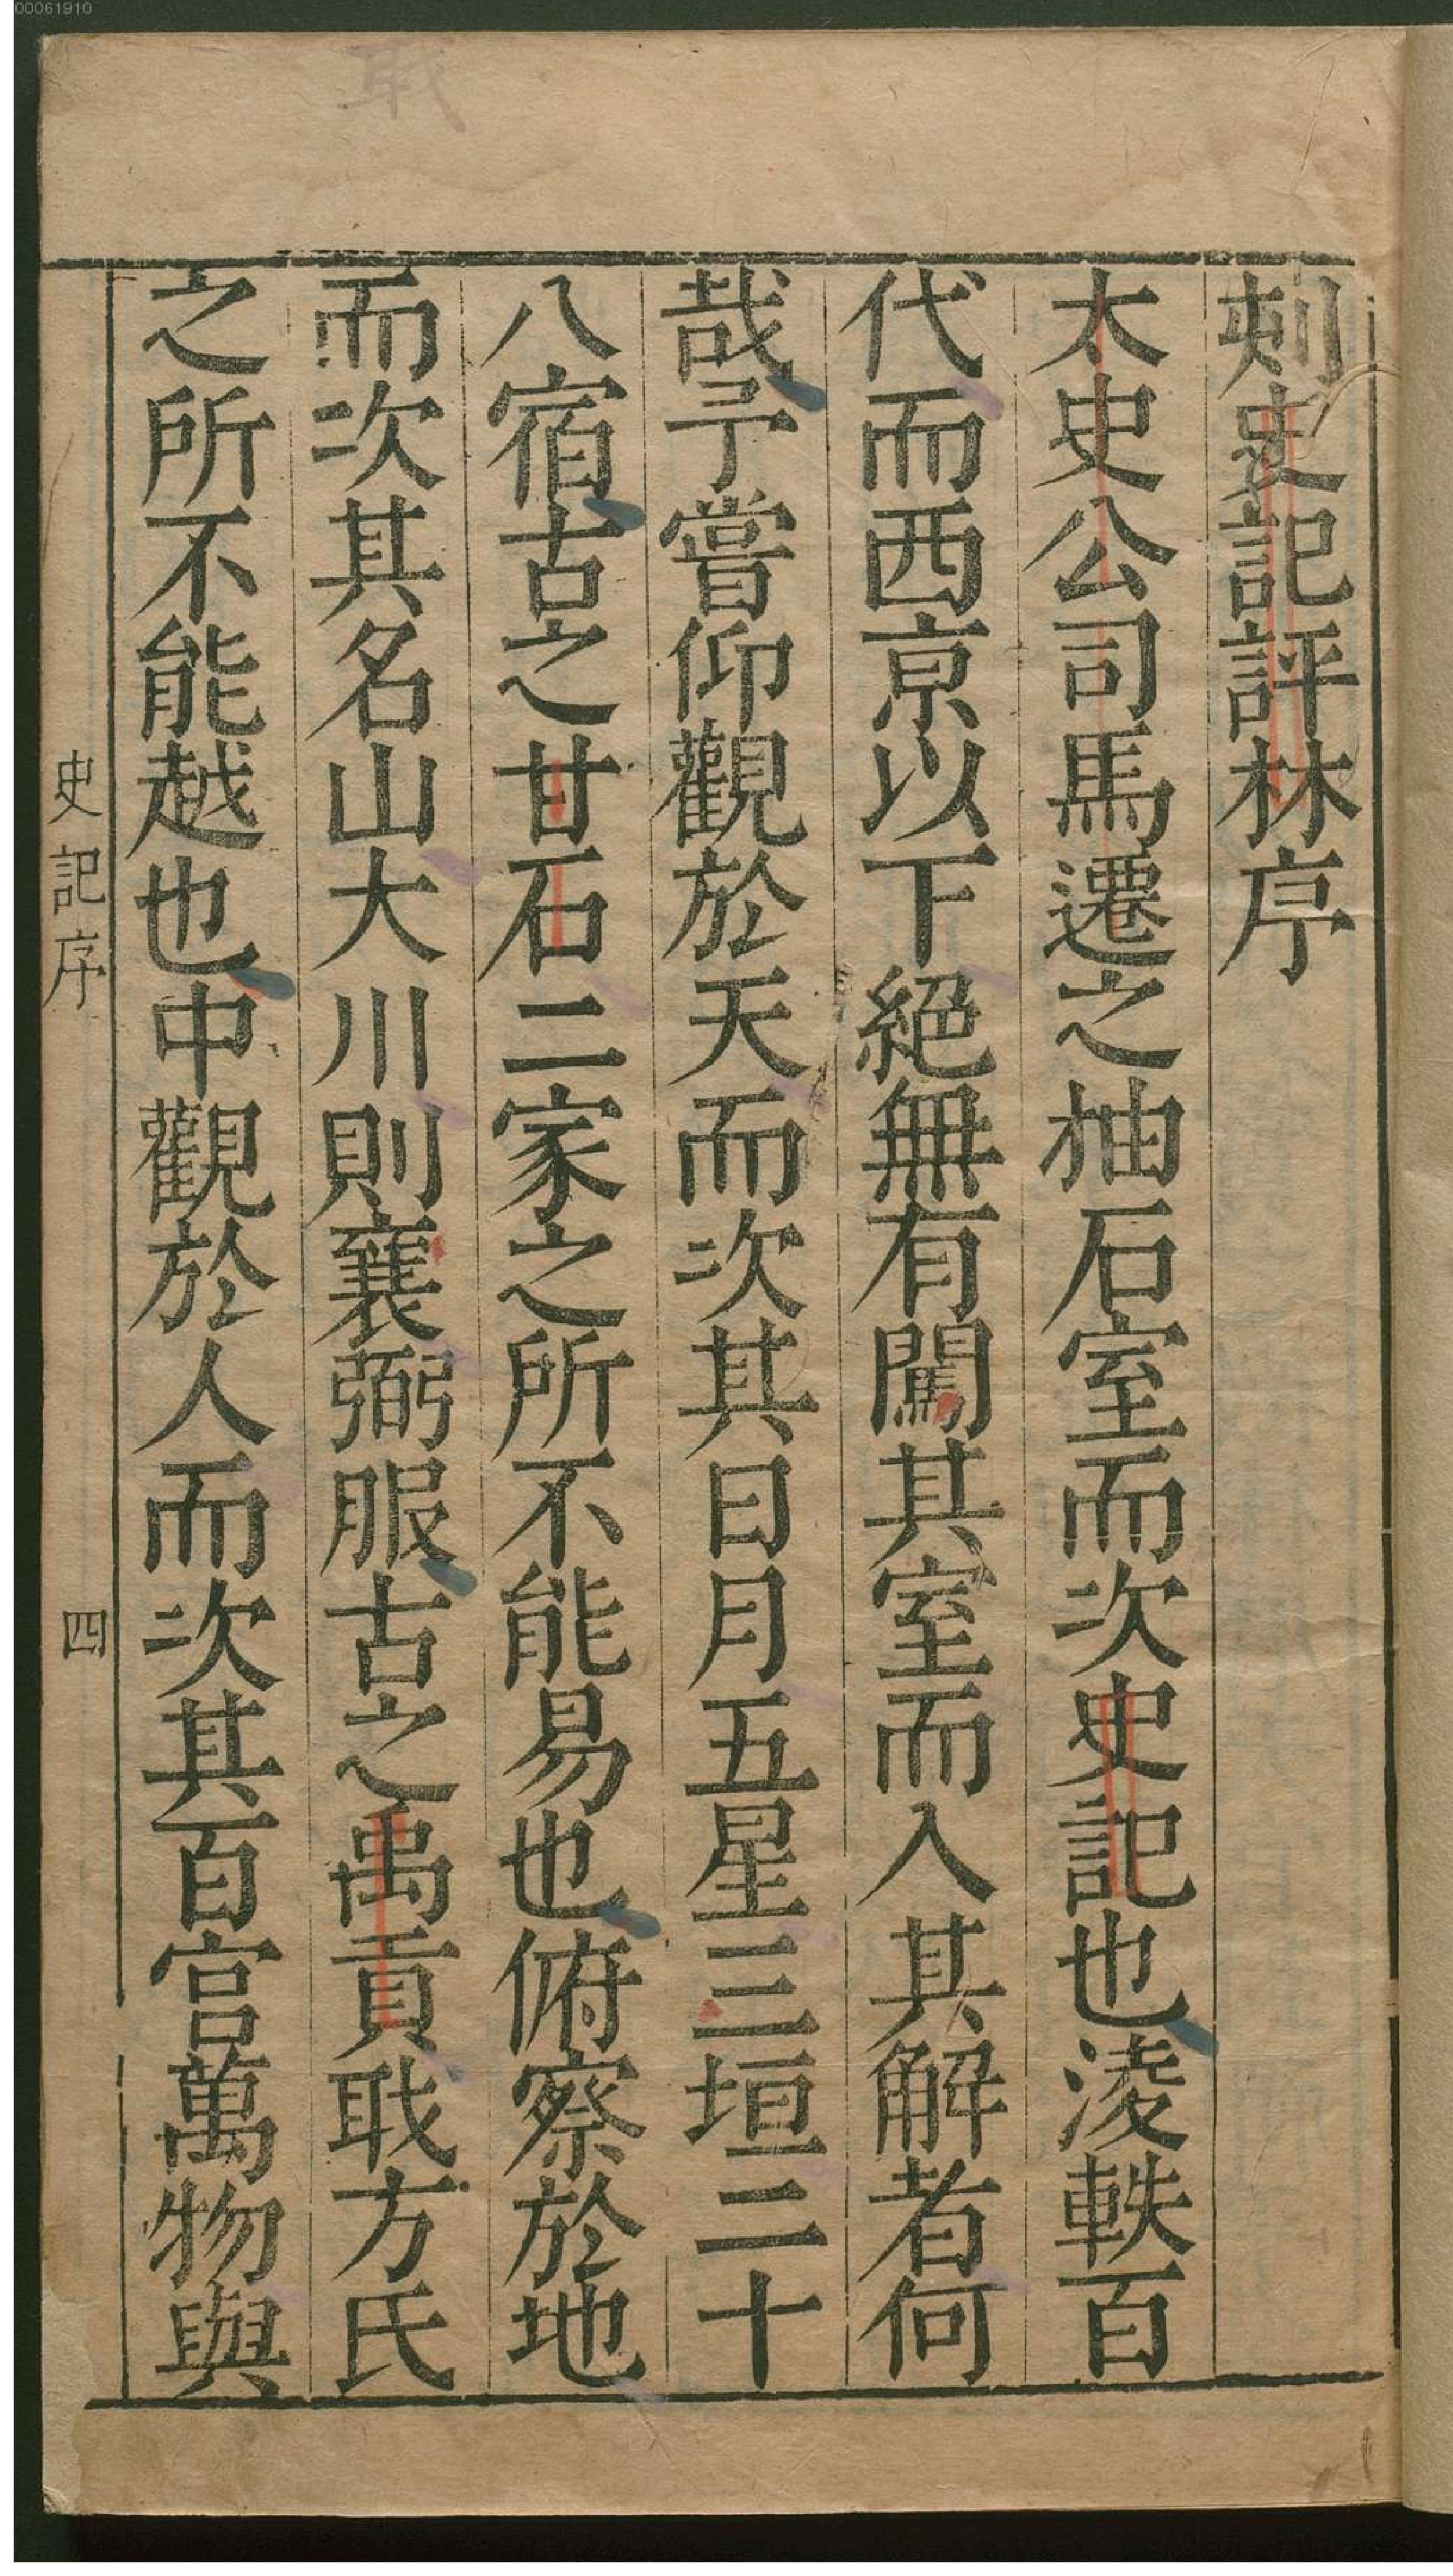 00061910
刻史記評林序
太史公司馬遷之抽石室而次史記也凌軼百
代而西京以下絕無有闖其室而入其解者何
哉予嘗仰觀於天而次其日月五星三垣二十
八宿古之甘石二家之所不能易也俯察於地
而次其名山大川則襄弼服古之禹貢職方氏
之所不能越也中觀於人而次其百官萬物與
史記序
四